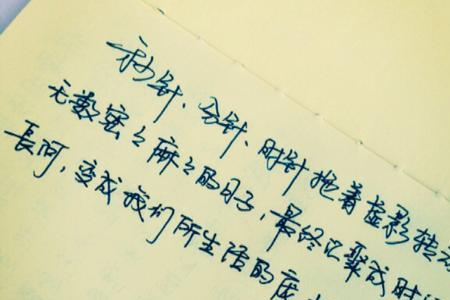 秒针、分针、时针拖着虚影转动
无数密密麻麻的日子，最终汇聚成时
长河，变成我们所生活的